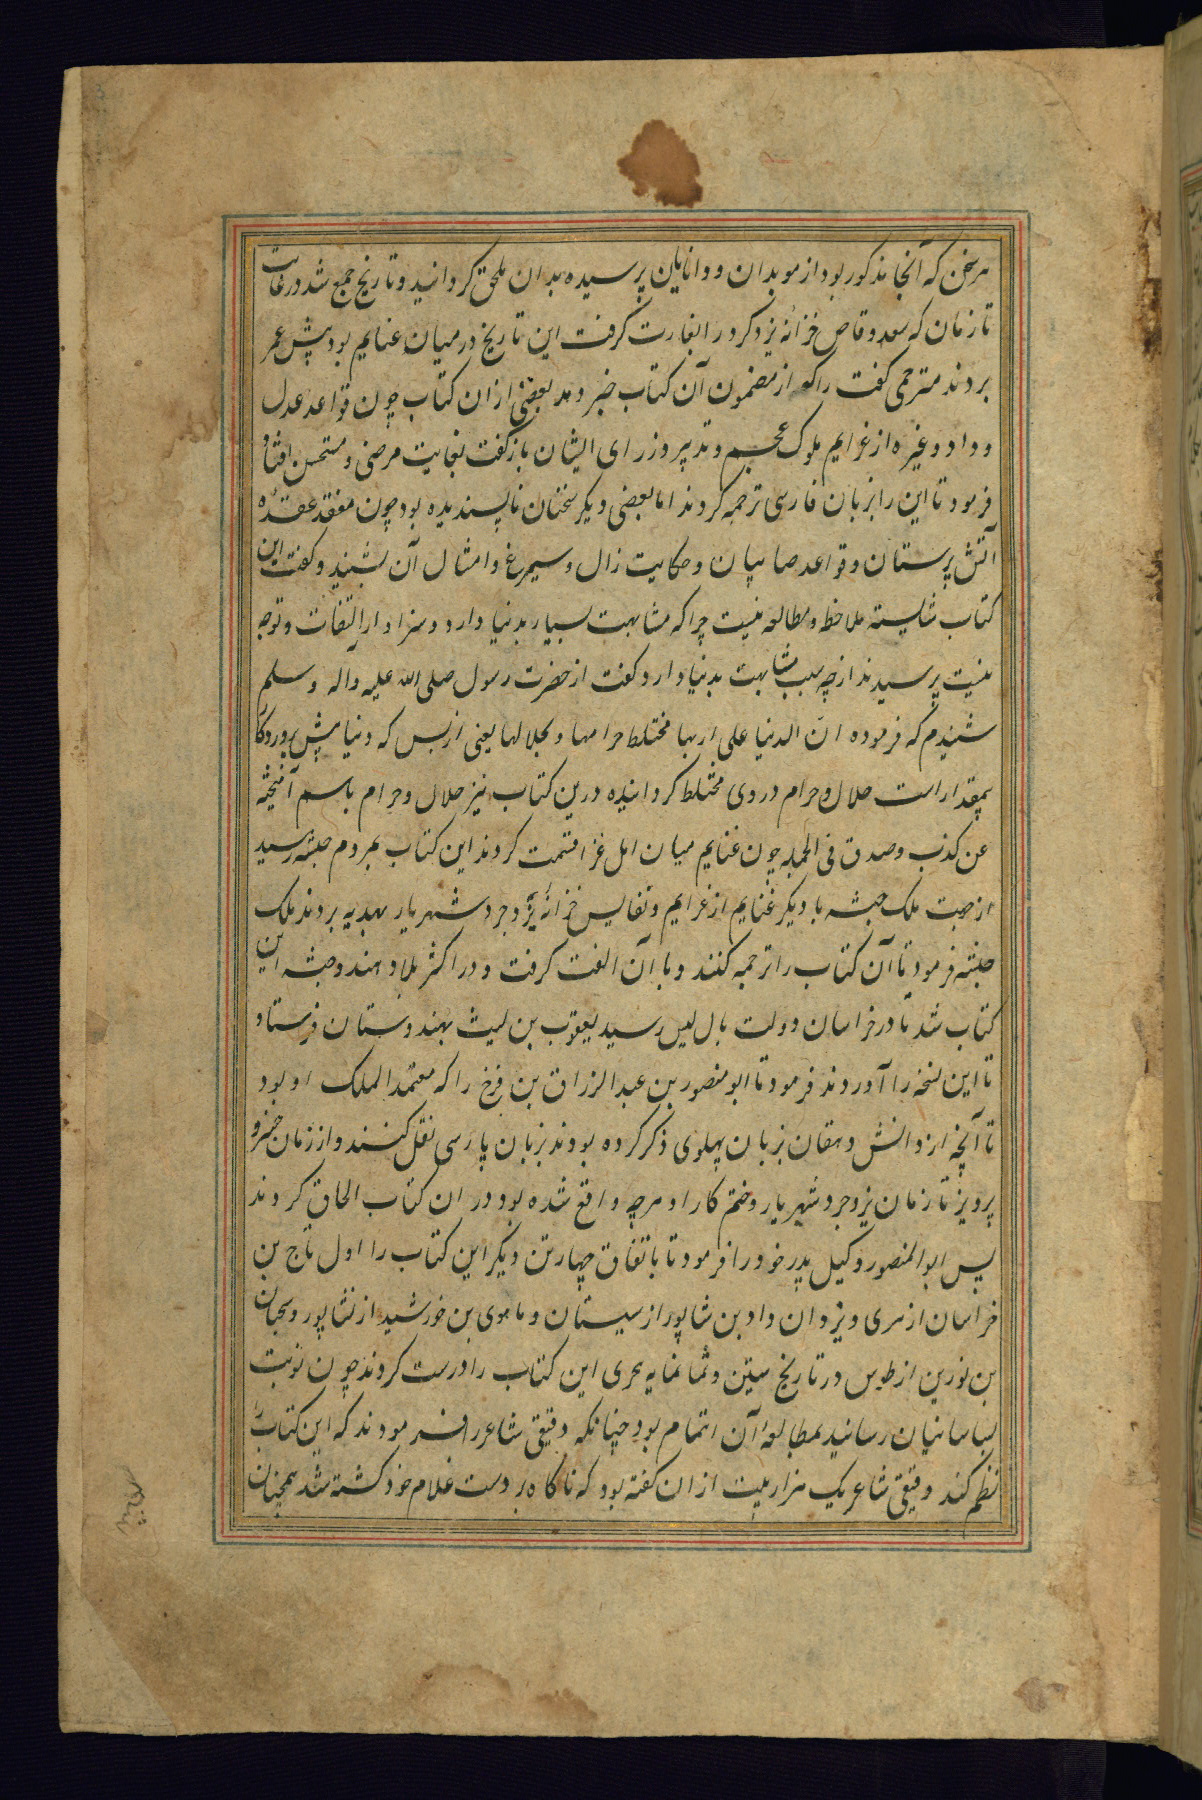 هر سخن که آنجا مذکور بود از موبدان و دانایان پرسیده بدان ملحق کردانید و تاریخ جمع شد در غایت
تا زمان که سعد وقاص خزانه یزدکرد را بغارت کرفت این تاریخ در میان غنایم بود پیش عمر
بردند مترجمی کفت را که از مضمون آن کتاب خبر دهد بعضی از ان کتاب چون قواعد عدل
و داد و غیره از غرایم ملوک عجم و تدبیر وزرای ایشان باز کفت بغایت مرضی و مستحسن افتاد
فرمود تا این را بزبان فارسی ترجمه کردند اما بعضی دیکر سخنان ناپسندیده بود چون معقد عقده
آتش پرستان و قواعد صابیان و حکایت زال و سیمرغ و امثال آن بشنید و کفت این
کتاب شایسته ملاحظه و مطالعه نیست چرا که مشابهت بسیار بدنیا دارد و سزاوار التفات و توجه
نیست پرسیدند از چه سبب مشابهت بدنیا دارد کفت از حضرت رسول صلی الله علیه واله وسلم
شنیدم که فرموده ان الدنیا علی اربها مختلط حرامها و بحلالها یعنی از بس که دنیا پیش پروردکار
بیمقدار است حلال و حرام در وی مختلط کردانیده درین کتاب نیز حلال و حرام باسم آمیخته
عن کذب و صدق فی الجمله چون غنایم میان اهل غزا قسمت کردند این کتاب بمردم حبشه رسید
از جهت ملک حبشه با دیکر غنایم از غرایم و نفایس خزانه یزدجرد شهریار بهدیه بردند ملک
حبشه فرمود تا آن کتاب را ترجمه کنند و با آن الفت کرفت و در اکثر بلاد هند و حبشه این
کتاب شد تا در خراسان دولت بال لیس رسید یعقوب بن لیث بهندوستان فرستاد
تا این نسخه را آوردند فرمود تا ابو منصور بن عبد الرزاق بن فرخ را که معتمد الملک او بود
تا آنچه از دانش دهقان بزبان پهلوی ذکر کرده بودند بزبان پارسی نقل کنند و از زمان خسرو
پرویز تا زمان یزدجرد شهریار و ختم کار او هرچه واقع شده بود در ان کتاب الحاق کردند
پس ابو المنصور وکیل پدر خود را فرمود تا باتفاق چهار تن دیکر این کتاب را اول تاج بن
خراسان از هری و یزدان داد بن شاپور از سیستان و ماهوی بن خورشید از نشاپور و سبحان
بن نورین از طوس در تاریخ ستین و ثمانمایه هجری این کتاب را درست کردند چون نوبت
بساسانیان رسانید بمطالعه آن اتمام بود چنانکه دقیقی شاعر را فرمودند که این کتاب را
نظم کند دقیقی شاعر یک هزار بیت از ان کفته بود که ناکاه بر دست غلام خود کشته شد همچنان